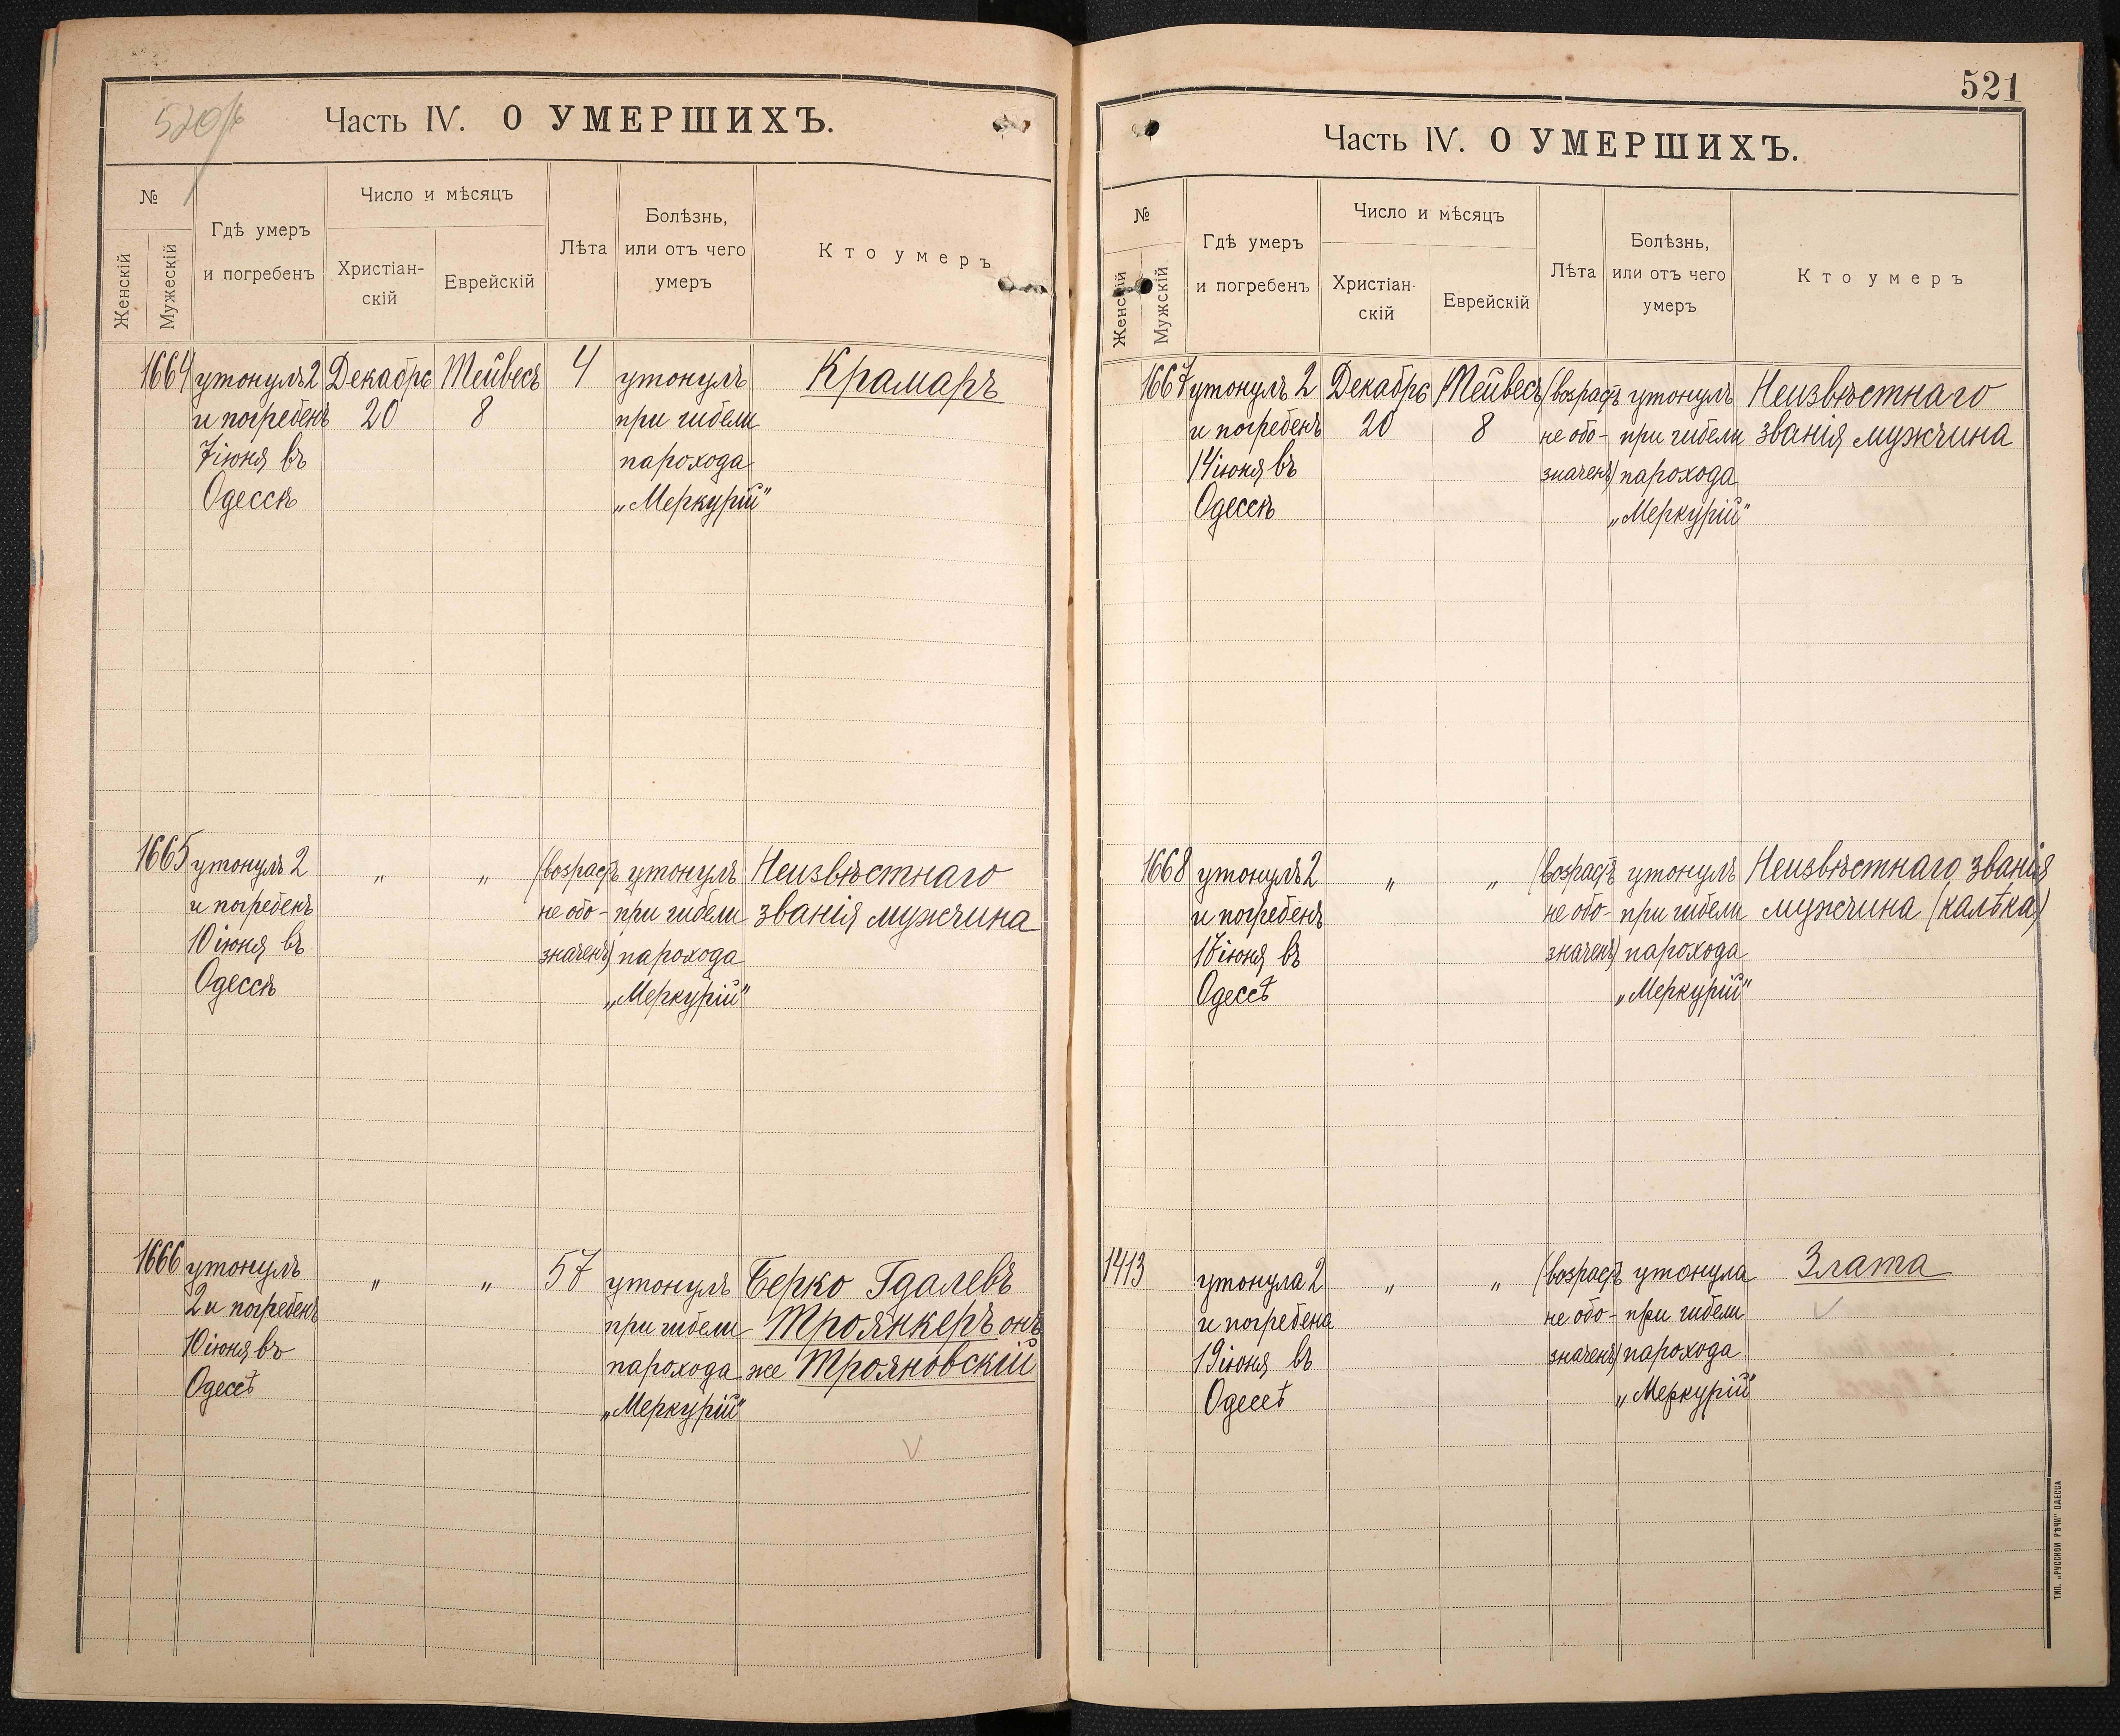 520/б
Часть IV. О УМЕРШИХЪ.
№
Женскій
Мужескій
Гдѣ умеръ
и погребенъ
Число и мѣсяцъ
Христіан-
скій
Еврейскій
Лѣта
Болѣзнь,
или отъ чего
умеръ
Кто умеръ
1664 утонулъ 2 Декабрь Тейвесъ 4 утонулъ Крамаръ
и погребенъ 20 8 при гибели
7 іюня въ парохода
Одессѣ „Меркурій"
1665 утонулъ 2 „ „ (возрастъ утонулъ Неизвѣстнаго
и погребенъ не обо- при гибели званія мужчина
10 іюня въ значенъ) парохода
Одессѣ „Меркурій"
1666 утонулъ „ „ 57 утонулъ Берко Гдалевъ
2 и погребенъ при гибели Троянкеръ онъ
10 іюня въ парохода же Трояновскій
Одессѣ „Меркурій"
521
Часть IV. О УМЕРШИХЪ.
№
Женскій
Мужскій
Гдѣ умеръ
и погребенъ
Число и мѣсяцъ
Христіан-
скій
Еврейскій
Лѣта
Болѣзнь,
или отъ чего
умеръ
Кто умеръ
1667 утонулъ 2 Декабрь Тейвесъ (возрастъ утонулъ Неизвѣстнаго
и погребенъ 20 8 не обо- при гибели званія мужчина
14 іюня въ значенъ) парохода
Одессѣ „Меркурій"
1668 утонулъ 2 „ „ (возрастъ утонулъ Неизвѣстнаго званія
и погребенъ не обо- при гибели мужчина (калѣка)
17 іюня въ значенъ) парохода
Одессѣ „Меркурій"
1413 утонула 2 „ „ (возрастъ утонула Злата
и погребена не обо- при гибели
19 іюня въ значенъ) парохода
Одессѣ „Меркурій"
ТИП. „РУССКОЙ РѢЧИ" ОДЕССА